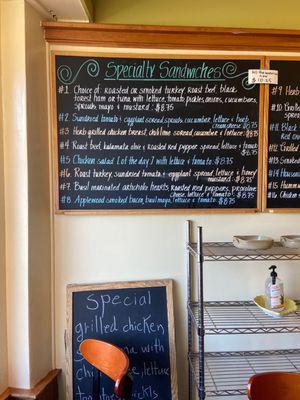 Specialty Sandwiches
#1 Choice of: roasted or smoked turkey, roast beef, black
forest ham or tuna, with lettuce, tomato, pickles, onions, cucumbers,
sprouts, mayo + mustard: $8.75
#2 Sundried tomato + eggplant spread, sprouts, cucumber, lettuce + herb
cream cheese $8.75
#3 Herb grilled chicken breast, chili lime spread, cucumber + lettuce: $8.75
#4 Roast beef, kalamata olive + roasted red pepper spread, lettuce + tomato: $8.75
#5 Chicken salad (of the day) with lettuce + tomato: $8.75
#6 Roast turkey, sundried tomato + eggplant spread, lettuce + honey
mustard: $8.75
#7 Basil marinated artichoke hearts, roasted red peppers, provolone
cheese, lettuce: $8.75
#8 Applewood smoked bacon, basil mayo, lettuce + tomato: $8.75
$10.25
#9 Herb
#10
#11 Black
Red
#12
#13 Roast
#14 Hous
#15 Humm
#16
Special
grilled chicken
with
lettuce